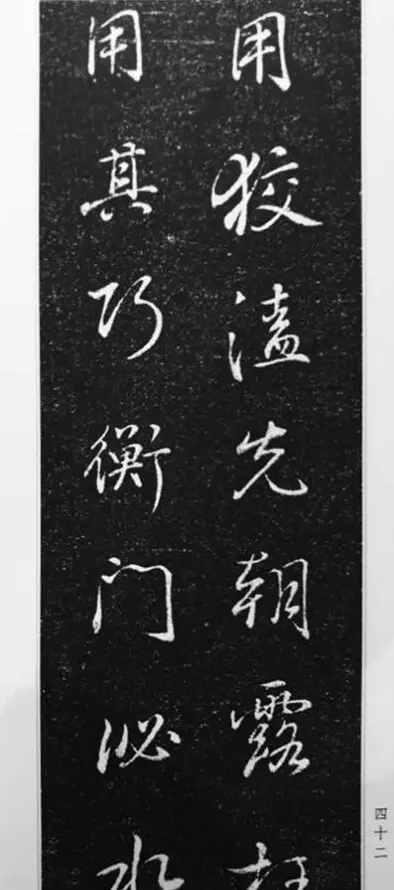 用狡溘先朝露
用其巧衡门泌水
四十二